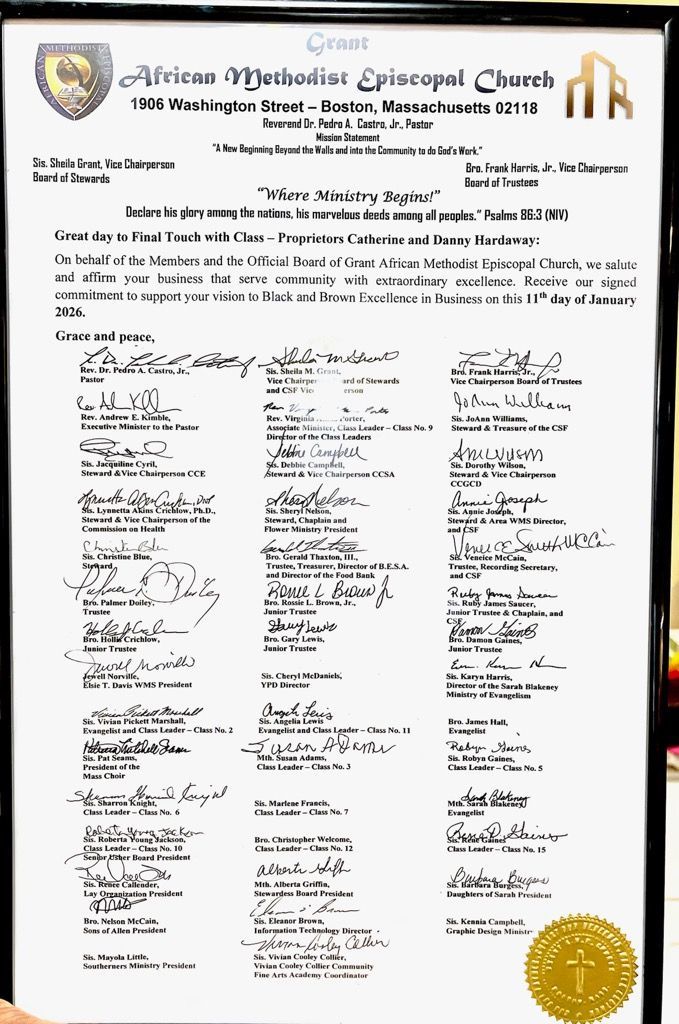 Grant
African Methodist Episcopal Church
1906 Washington Street – Boston, Massachusetts 02118
Reverend Dr. Pedro A. Castro, Jr., Pastor
Mission Statement
"A New Beginning Beyond the Walls and into the Community to do God's Work."
Sis. Sheila Grant, Vice Chairperson
Board of Stewards
Bro. Frank Harris, Jr., Vice Chairperson
Board of Trustees
"Where Ministry Begins!"
Declare his glory among the nations, his marvelous deeds among all peoples." Psalms 86:3 (NIV)
Great day to Final Touch with Class – Proprietors Catherine and Danny Hardaway:
On behalf of the Members and the Official Board of Grant African Methodist Episcopal Church, we salute
and affirm your business that serve community with extraordinary excellence. Receive our signed
commitment to support your vision to Black and Brown Excellence in Business on this 11th day of January
2026.
Grace and peace,
Rev. Dr. Pedro A. Castro, Jr.,
Pastor
Sheila M Grant
Sis. Sheila M. Grant,
Vice Chairperson Board of Stewards
and CSF Vice Chairperson
Bro. Frank Harris, Jr.,
Vice Chairperson Board of Trustees
Rev. Andrew E. Kimble,
Executive Minister to the Pastor
Rev. Virginia Porter,
Associate Minister, Class Leader – Class No. 9
Director of the Class Leaders
JoAnn Williams
Sis. JoAnn Williams,
Steward & Treasure of the CSF
Sis. Jacquiline Cyril,
Steward &Vice Chairperson CCE
Debbie Campbell
Sis. Debbie Campbell,
Steward &Vice Chairperson CCSA
Sis. Dorothy Wilson,
Steward & Vice Chairperson
CCGCD
Sis. Lynnetta Akins Crichlow, Ph.D.,
Steward & Vice Chairperson of the
Commission on Health
Sheryl Nelson
Sis. Sheryl Nelson,
Steward, Chaplain and
Flower Ministry President
Annie Joseph
Sis. Annie Joseph,
Steward & Area WMS Director,
and CSF
Sis. Christine Blue,
Steward
Bro. Gerald Thaxton, III.,
Trustee, Treasurer, Director of B.E.S.A.
and Director of the Food Bank
Sis. Veneice McCain,
Trustee, Recording Secretary,
and CSF
Bro. Palmer Doiley,
Trustee
Rossie L Brown Jr
Bro. Rossie L. Brown, Jr.,
Junior Trustee
Ruby James Saucer
Sis. Ruby James Saucer,
Junior Trustee & Chaplain, and
CSF
Hollis Crichlow
Bro. Hollis Crichlow,
Junior Trustee
Gary Lewis
Bro. Gary Lewis,
Junior Trustee
Damon Gaines
Bro. Damon Gaines,
Junior Trustee
Jewell Norville
Jewell Norville,
Elsie T. Davis WMS President
Sis. Cheryl McDaniels,
YPD Director
Sis. Karyn Harris,
Director of the Sarah Blakeney
Ministry of Evangelism
Vivian Pickett Marshall
Sis. Vivian Pickett Marshall,
Evangelist and Class Leader – Class No. 2
Angela Lewis
Sis. Angelia Lewis,
Evangelist and Class Leader – Class No. 11
Bro. James Hall,
Evangelist
Sis. Pat Seams,
President of the
Mass Choir
Susan Adams
Mth. Susan Adams,
Class Leader – Class No. 3
Robyn Gaines
Sis. Robyn Gaines,
Class Leader – Class No. 5
Sis. Sharron Knight,
Class Leader – Class No. 6
Sis. Marlene Francis,
Class Leader – Class No. 7
Sarah Blakeney
Mth. Sarah Blakeney
Evangelist
Roberta Young Jackson
Sis. Roberta Young Jackson,
Class Leader – Class No. 10
Senior Usher Board President
Bro. Christopher Welcome,
Class Leader – Class No. 12
Sis. Rene Gaines
Class Leader – Class No. 15
Sis. Renee Callender,
Lay Organization President
Mth. Alberta Griffin,
Stewardess Board President
Barbara Burgess
Sis. Barbara Burgess,
Daughters of Sarah President
Bro. Nelson McCain,
Sons of Allen President
Sis. Eleanor Brown,
Information Technology Director
Sis. Kennia Campbell,
Graphic Design Ministry
Sis. Mayola Little,
Southerners Ministry President
Vivian Cooley Collier
Sis. Vivian Cooley Collier,
Vivian Cooley Collier Community
Fine Arts Academy Coordinator